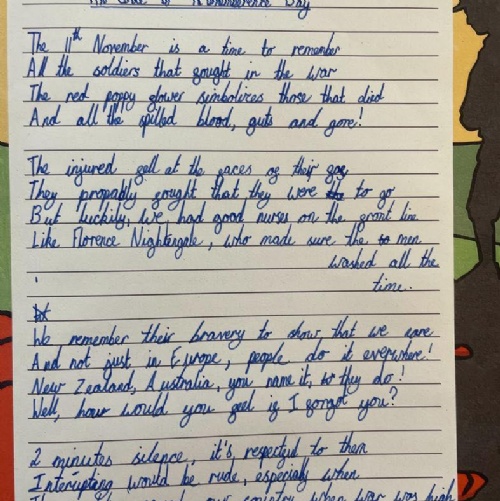 The of Day
The 11th November is a time to remember
All the soldiers that fought in the war
The red poppy flower simbolizes those that died
And all the spilled blood, guts and gore!
The injured fell at the faces of their foe
They propably fought that they were to go
But luckily, we had good nurses on the front line
Like Florence Nightengale, who made sure the men
washed all the
time.
We remember their bravery to show that we care
And not just in Europe, people do it everwhere!
New Zealand, Australia, you name it, they do!
Well, how would you feel if I forgot you?
2 minutes silence, it's respected to them
Interupting would be rude, especialy when
our country when war was high